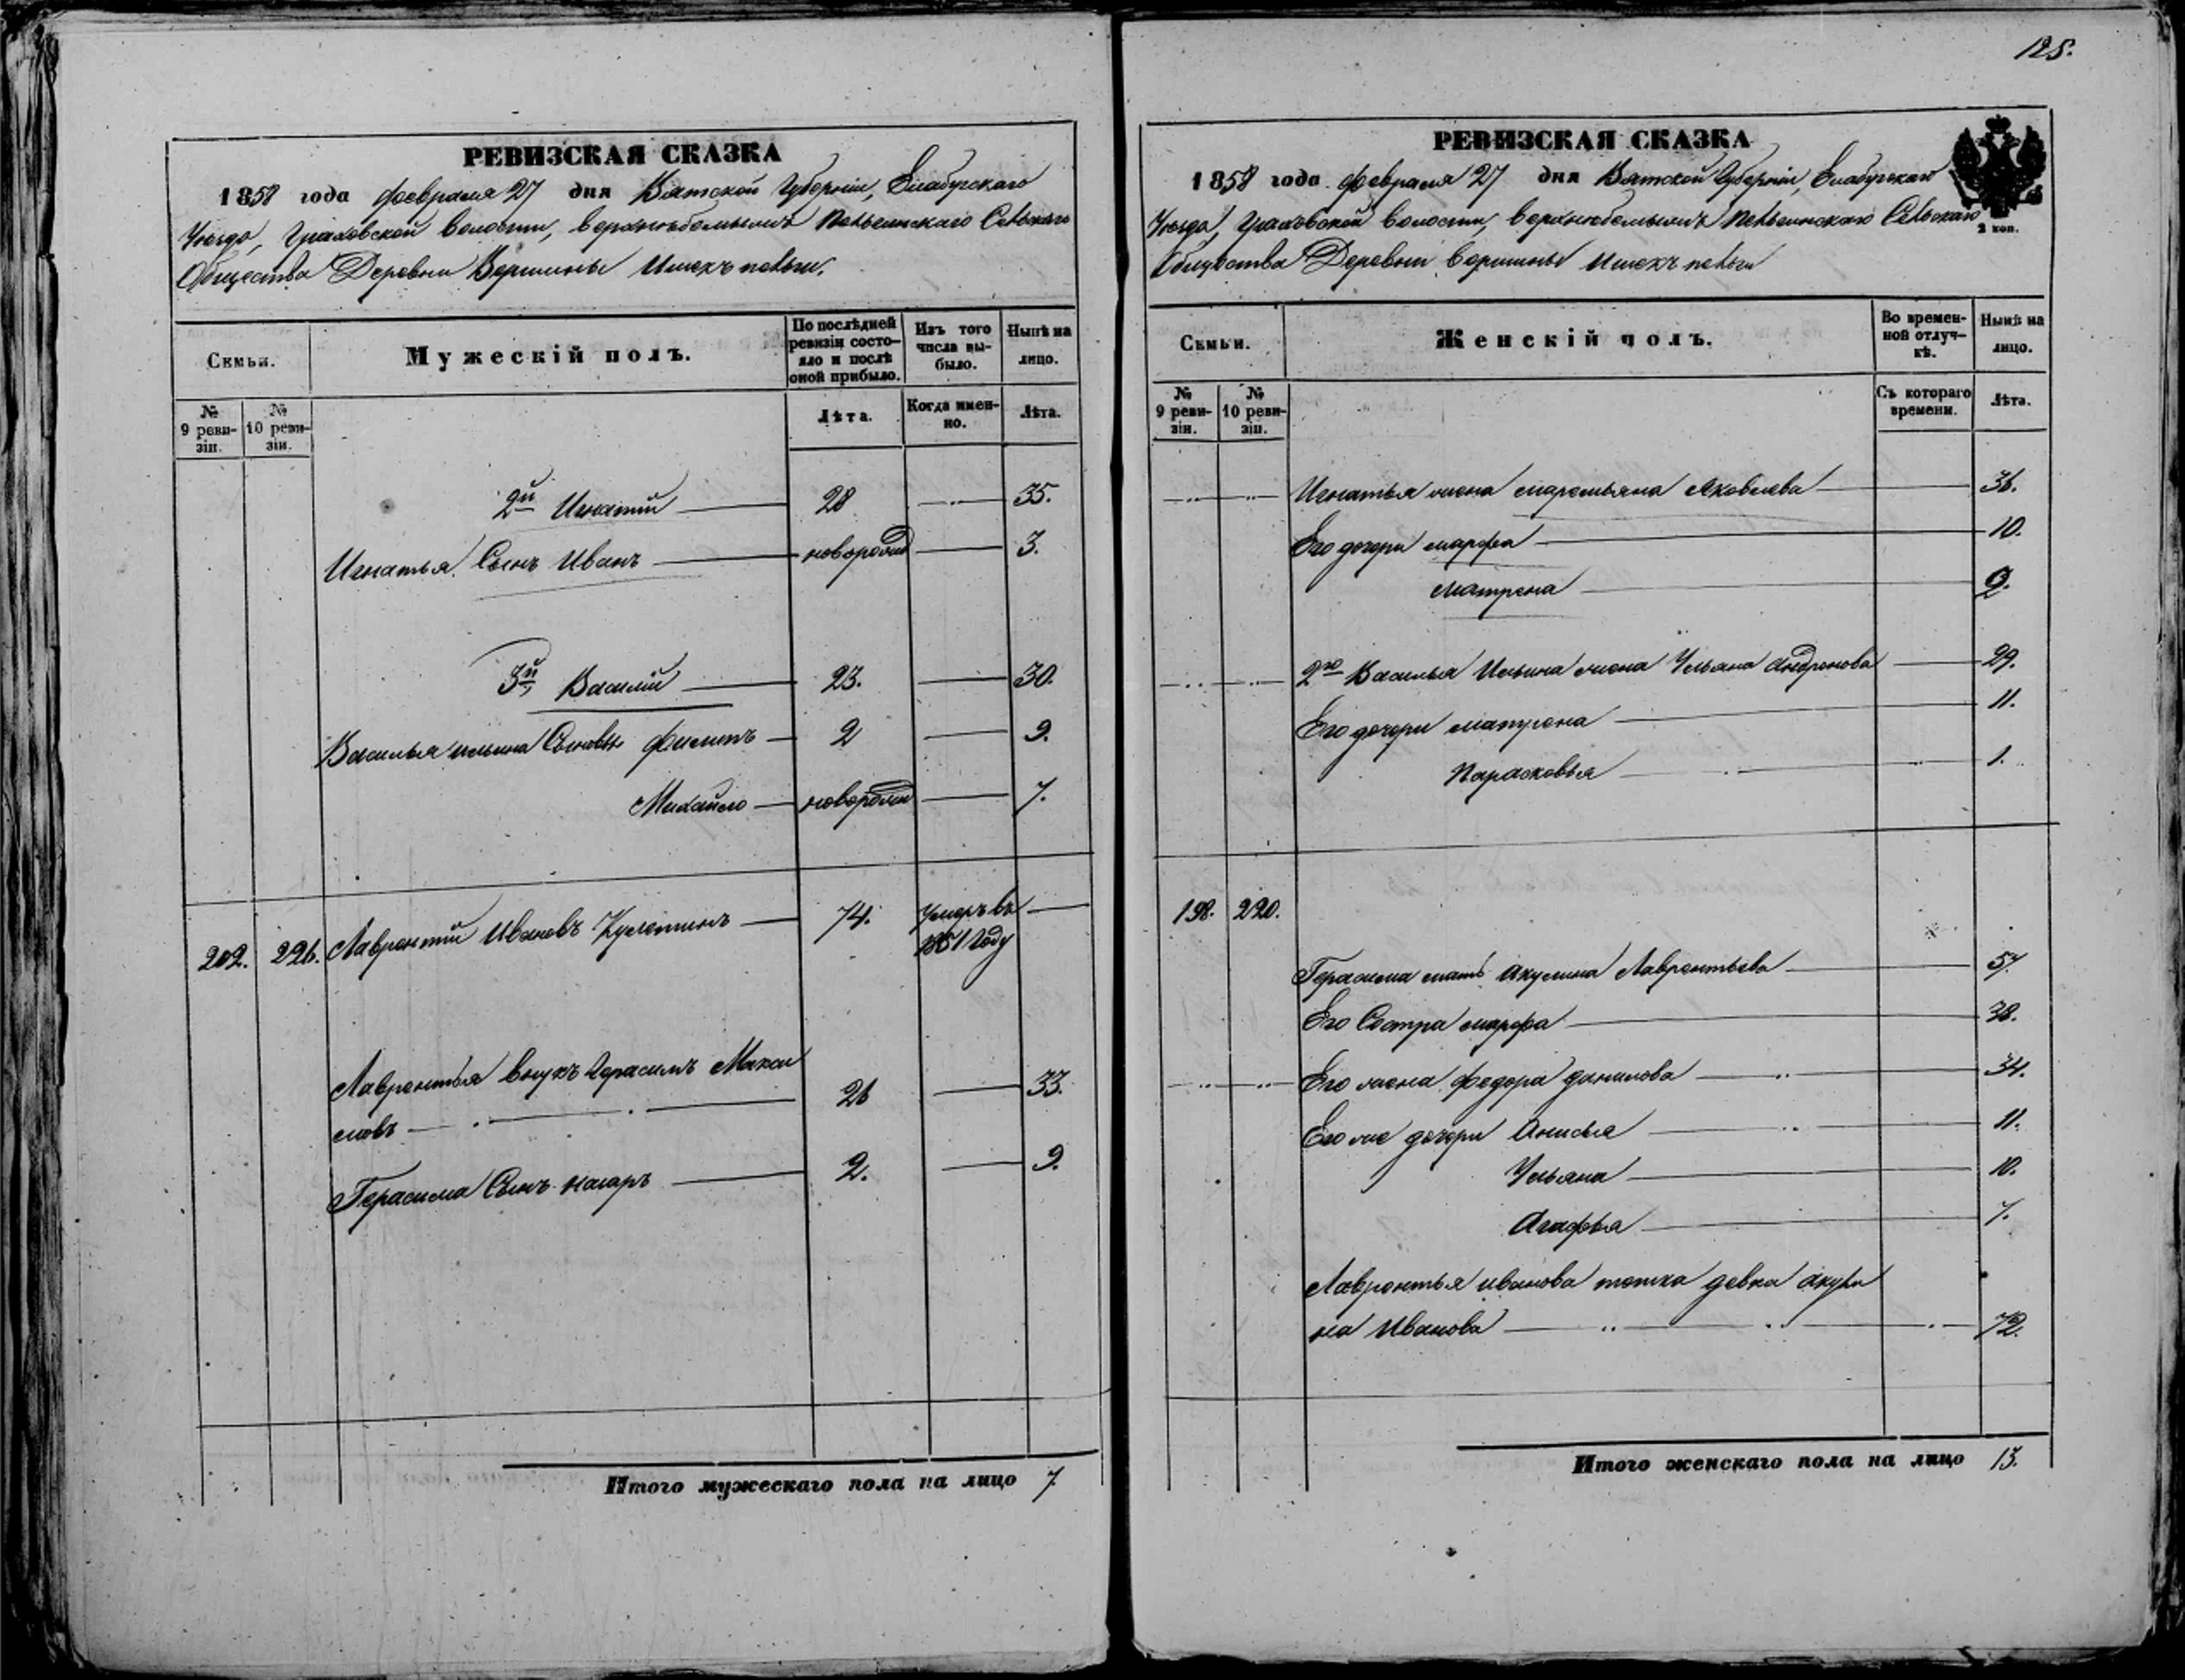 125.
РЕВИЗСКАЯ СКАЗКА
1858 года февраля 27 дня Вятской Губерніи, Елабугскаго
Уезда, Граховской волости, Сельскаго
Общества Деревни Вершины
Семьи.
Мужескій полъ.
По послѣдней ревизіи состояло и послѣ оной прибыло.
Изъ того числа выбыло.
Нынѣ на лицо.
№ 9 ревизіи.
№ 10 ревизіи.
Лѣта.
Когда именно.
Лѣта.
2й Игнатій — 28 — 35.
Игнатья Сынъ Иванъ — новорожд — 3.
3й Василій — 23. — 30.
Василья Ильина Сыновья Филипъ — 2 — 9.
Михайло — новорожд — 7.
202. 226. Лаврентій Ивановъ — 74. Умеръ въ —
1851 Году
Лаврентья внукъ Герасимъ Макси
мовъ — 26 — 33.
Герасима Сынъ — 2. — 9.
Итого мужескаго пола на лицо 7.
РЕВИЗСКАЯ СКАЗКА
1858 года февраля 27 дня Вятской Губерніи, Елабугскаго
Уезда, Граховской волости, Сельскаго
2 коп.
Общества Деревни Вершины
Семьи.
Женскій полъ.
Во временной отлучкѣ.
Нынѣ на лицо.
№ 9 ревизіи.
№ 10 ревизіи.
Съ котораго времени.
Лѣта.
Игнатья жена Маремьяна Яковлева — 36.
Его дочери марфа — 10.
матрена —
2го Василья Ильина жена Ульяна Андронова — 29.
Его дочери матрена — 11.
Парасковья — 1.
198. 220.
Герасима мать Акулина Лаврентьева — 57.
Его Сестра марфа — 38.
Его жена федора данилова — 34.
Его же дочери Анисья — 11.
Ульяна — 10.
Агафья — 7.
Лаврентья иванова тетка девка акули
на Иванова — 72.
Итого женскаго пола на лицо 13.